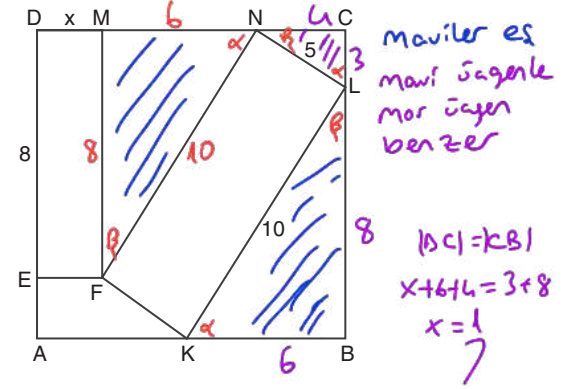 D x M 6 N 4 C
α β 5 3
α L
β
8 8 10
10 8
β
E F
α
A K 6 B
maviler eş
mavi üçgenle
mor üçgen
benzer
|DC|=|CB|
x+6+4=3+8
x=1